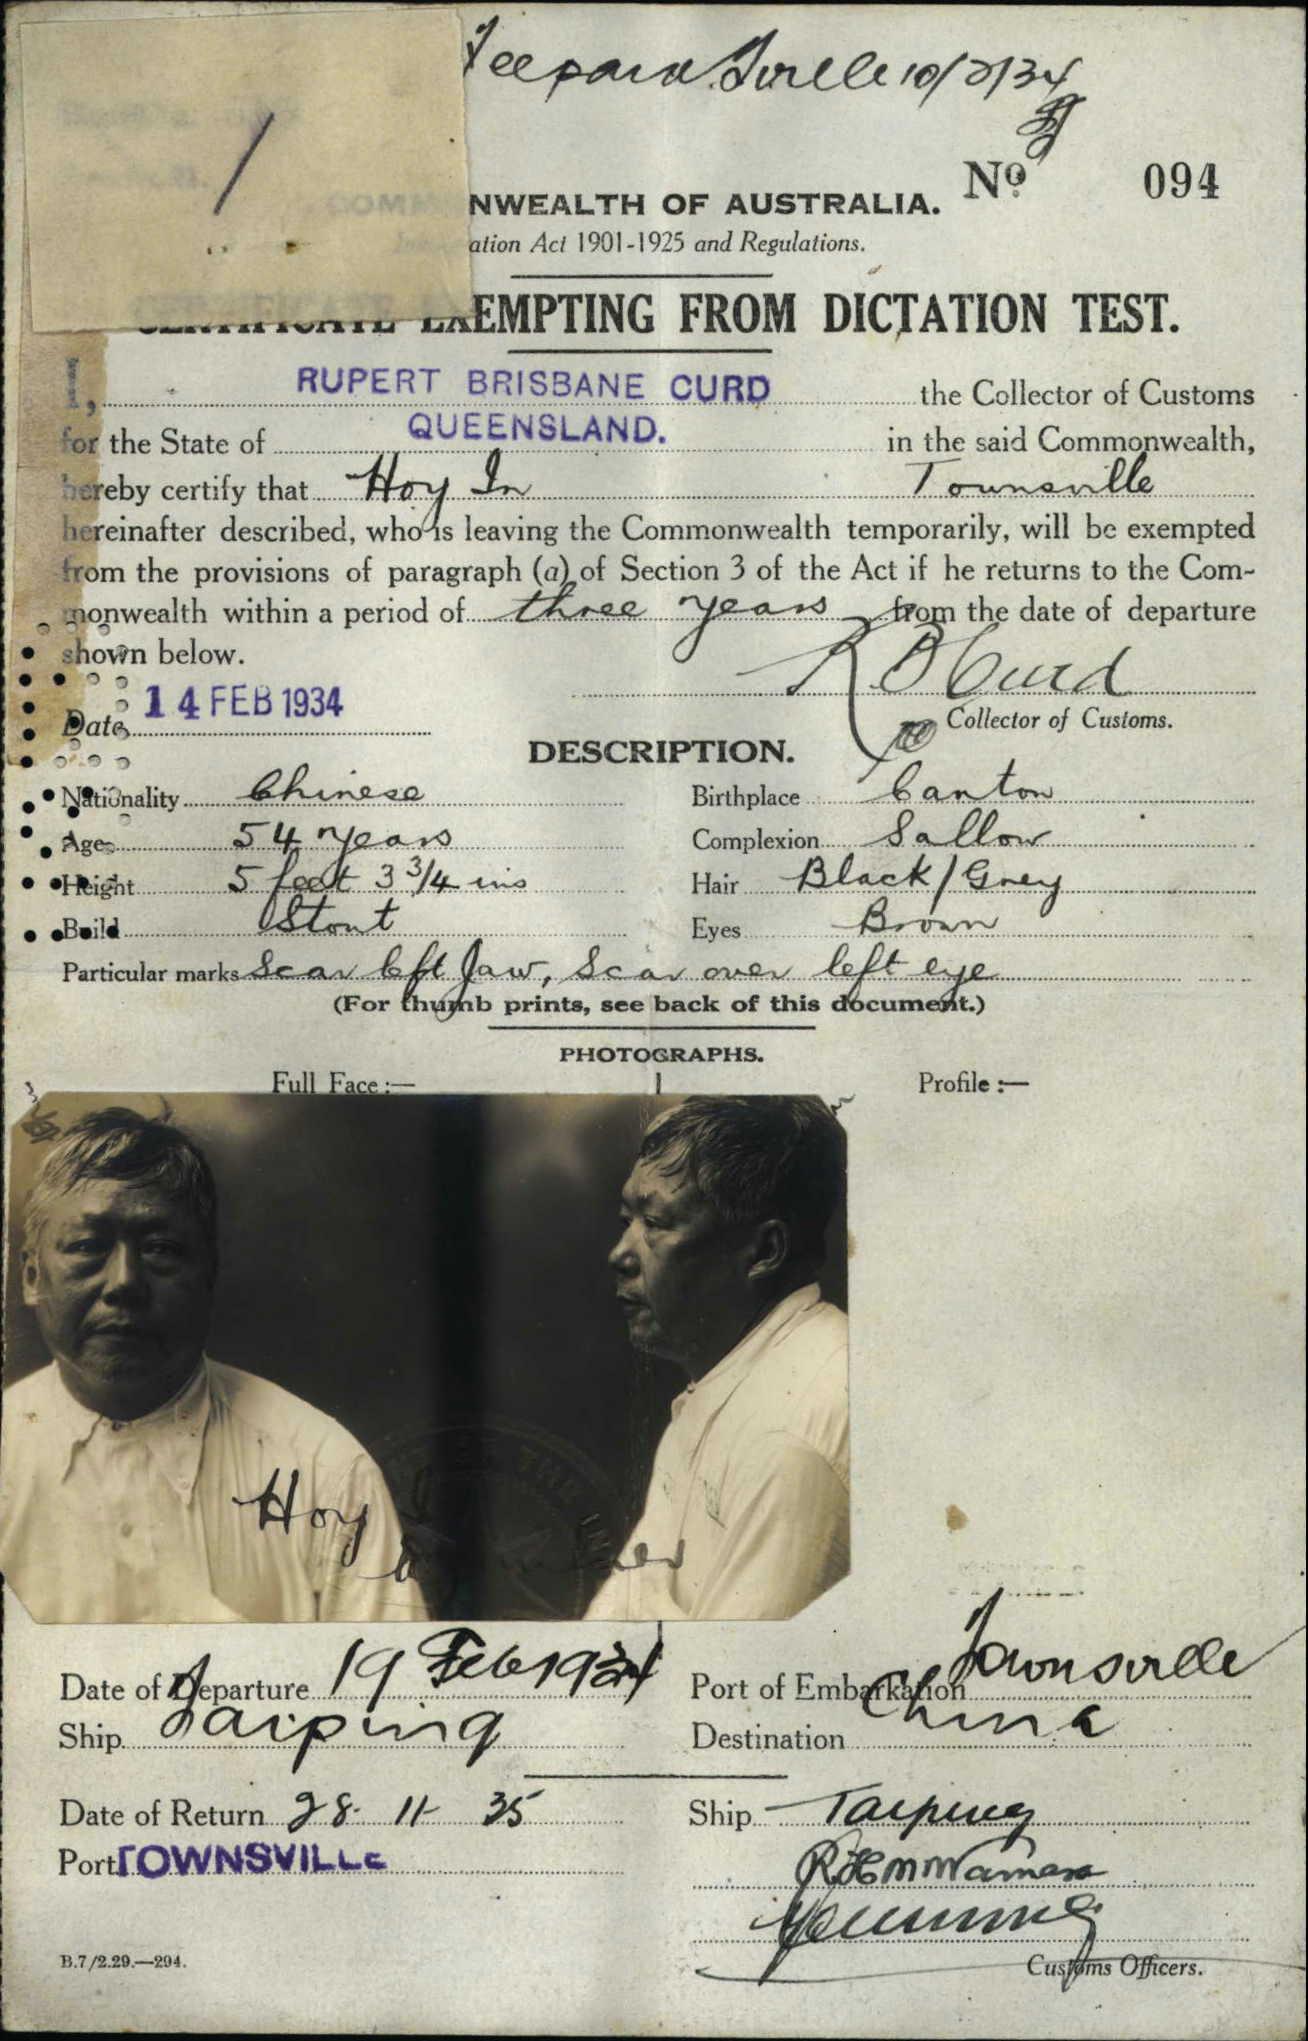 10/2/34
No. 094
COMMONWEALTH OF AUSTRALIA.
ation Act 1901-1925 and Regulations.
CERTIFICATE EXEMPTING FROM DICTATION TEST.
I, RUPERT BRISBANE CURD the Collector of Customs
for the State of QUEENSLAND. in the said Commonwealth,
hereby certify that Hoy In Townsville
hereinafter described, who is leaving the Commonwealth temporarily, will be exempted
from the provisions of paragraph (a) of Section 3 of the Act if he returns to the Com-
monwealth within a period of three years from the date of departure
shown below.
R B Curd
Date 14 FEB 1934
Collector of Customs.
DESCRIPTION.
Nationality Chinese Birthplace Canton
Age 54 years Complexion Sallow
Height 5 feet 3 3/4 ins Hair Black/Grey
Build Stout Eyes Brown
Particular marks Scar left Jaw, Scar over left eye
(For thumb prints, see back of this document.)
PHOTOGRAPHS.
Full Face :— Profile :—
Hoy
Date of Departure 19 Feb 1934 Port of Embarkation Townsville
Ship Taiping Destination China
Date of Return 28-11-35 Ship Taiping
Port TOWNSVILLE
Customs Officers.
B.7/2.29.—294.